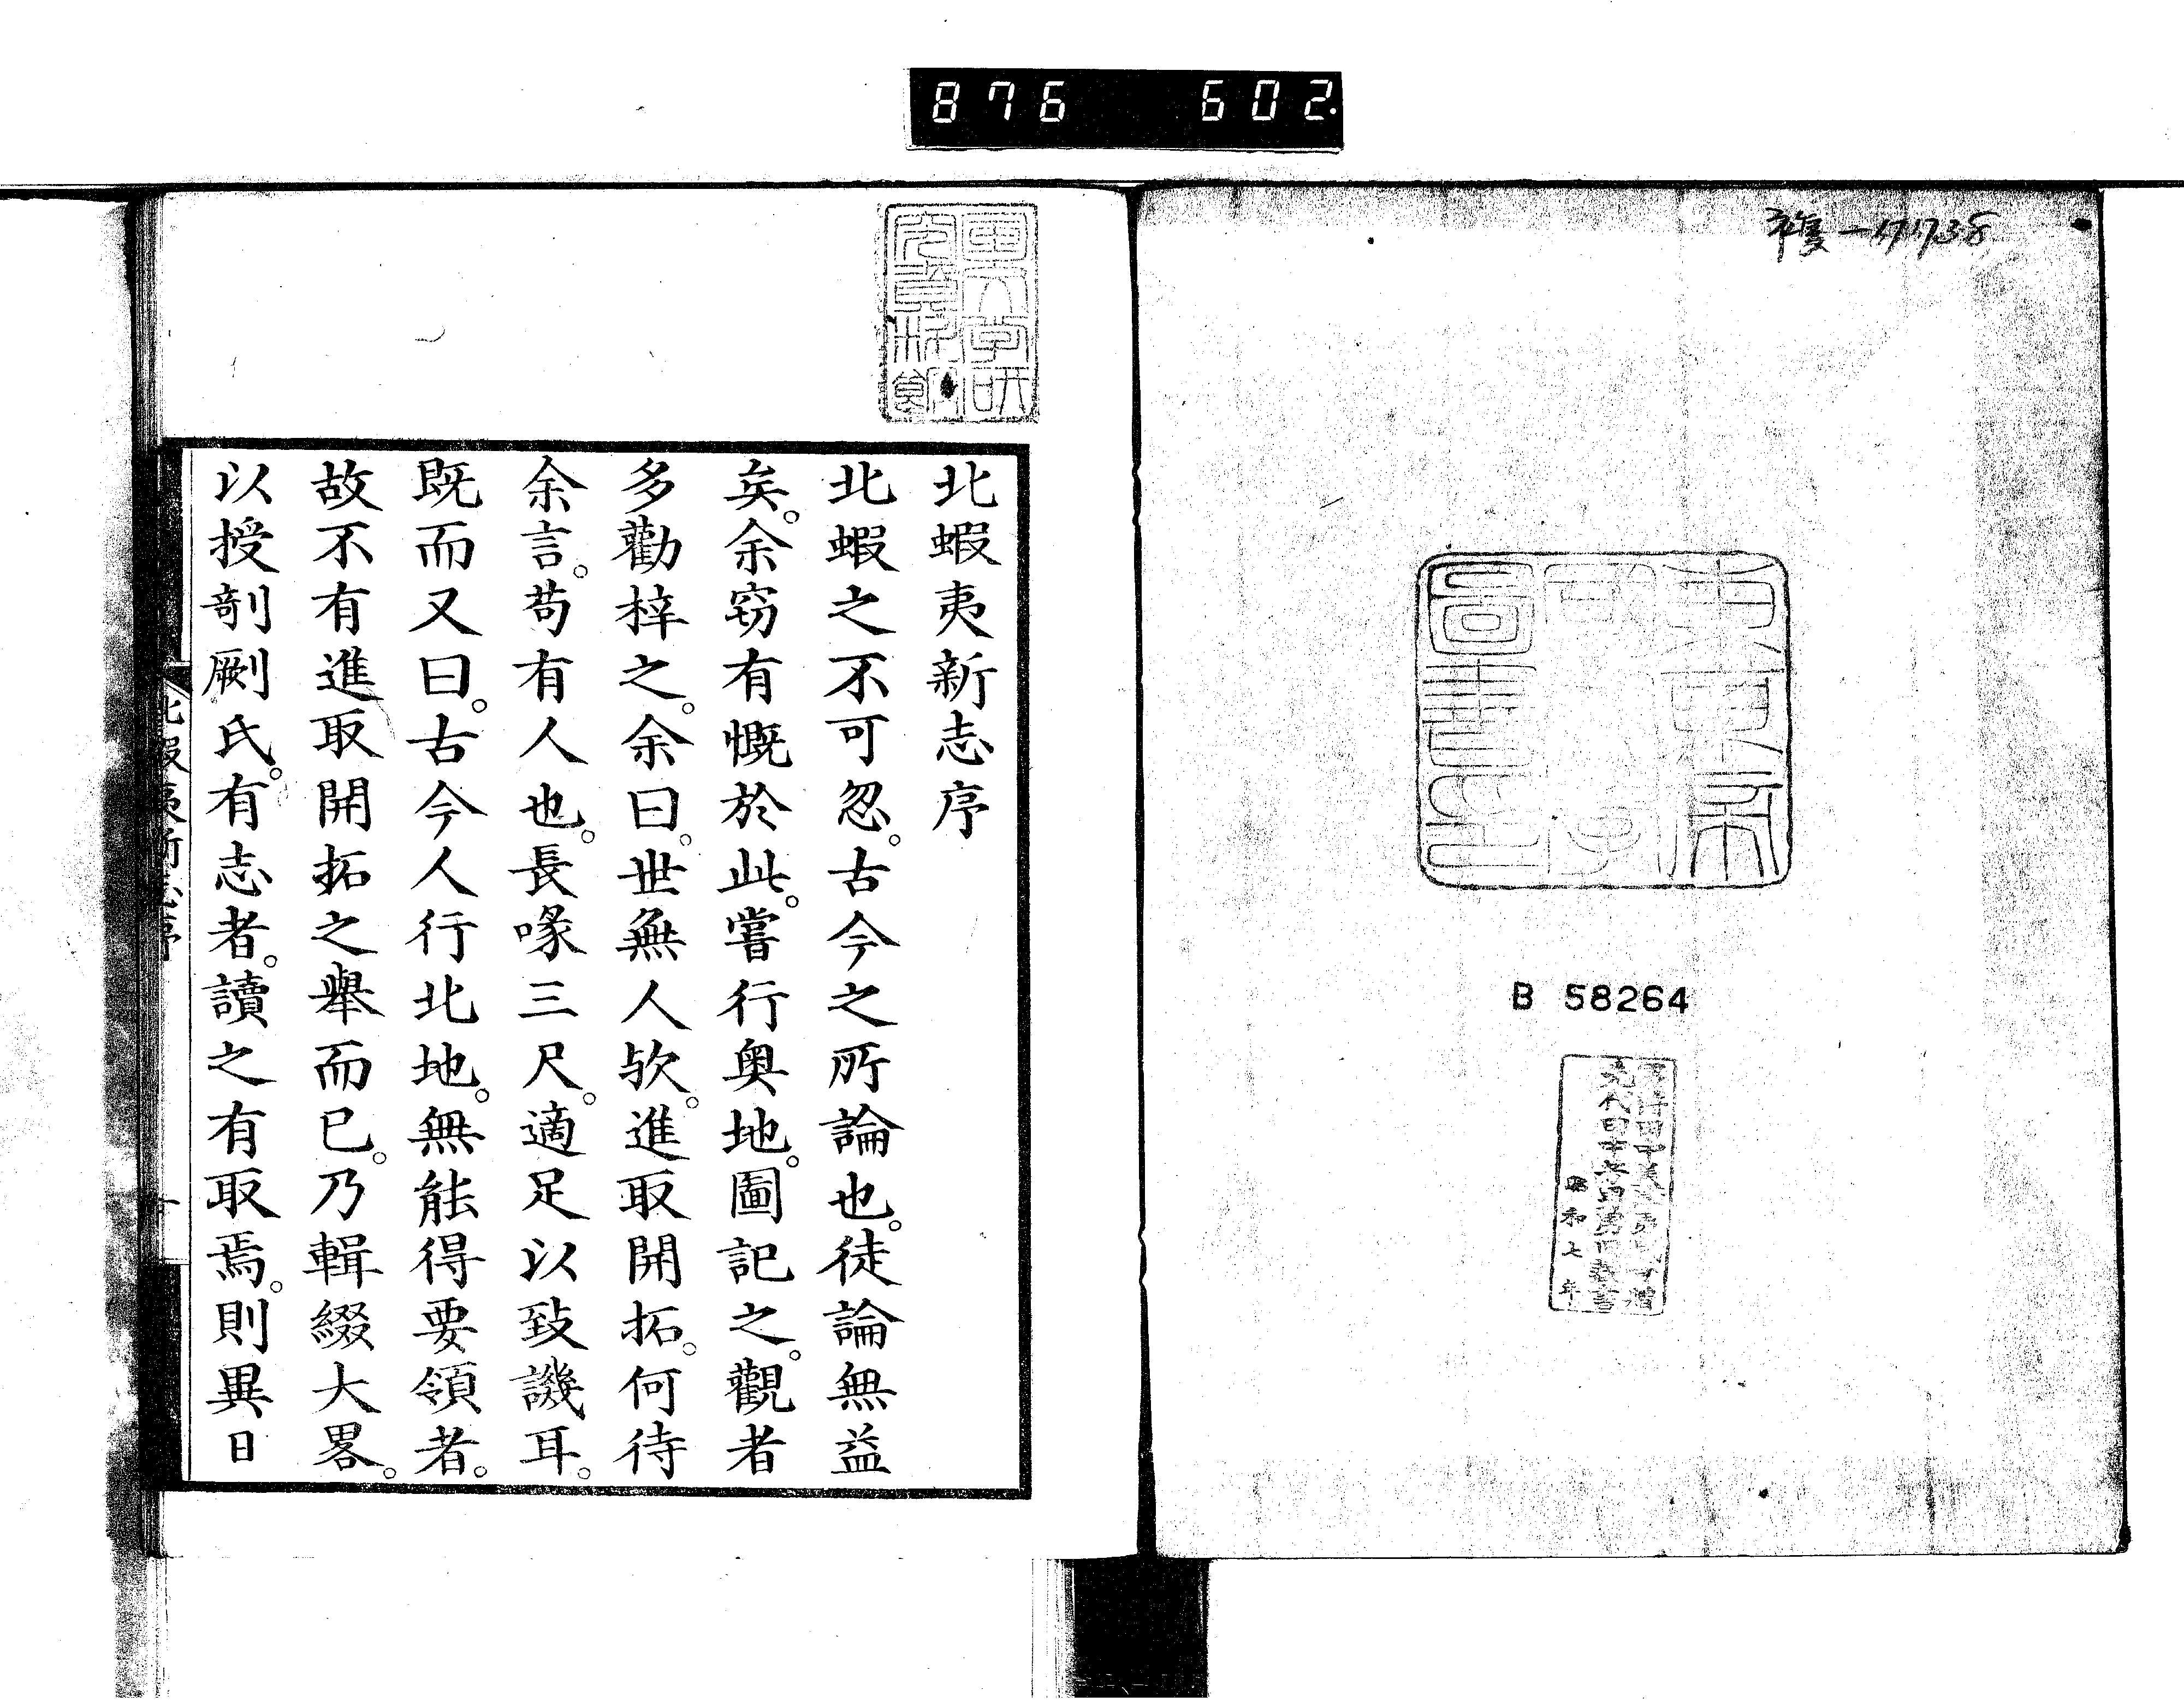 876 602
B 58264
昭和七年
北蝦夷新志序
北蝦之不可忽。古今之所論也。徒論無益
矣。余窃有慨於此。嘗行奥地。圖記之。觀者
多勸梓之。余曰。世無人欤。進取開拓。何待
余言。苟有人也。長喙三尺。適足以致譏耳。
既而又曰。古今人行北地。無能得要領者。
故不有進取開拓之舉而已。乃輯綴大畧。
以授剞劂氏。有志者。讀之有取焉。則異日
北蝦夷新志序